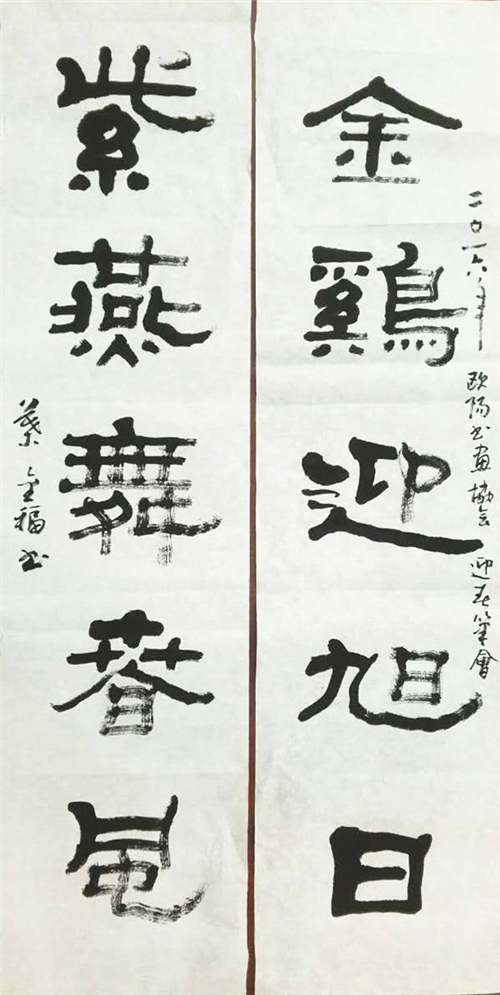 二〇一六年 欧阳书画协会 迎春笔會
金鷄迎旭日
紫燕舞春风
葉金福书